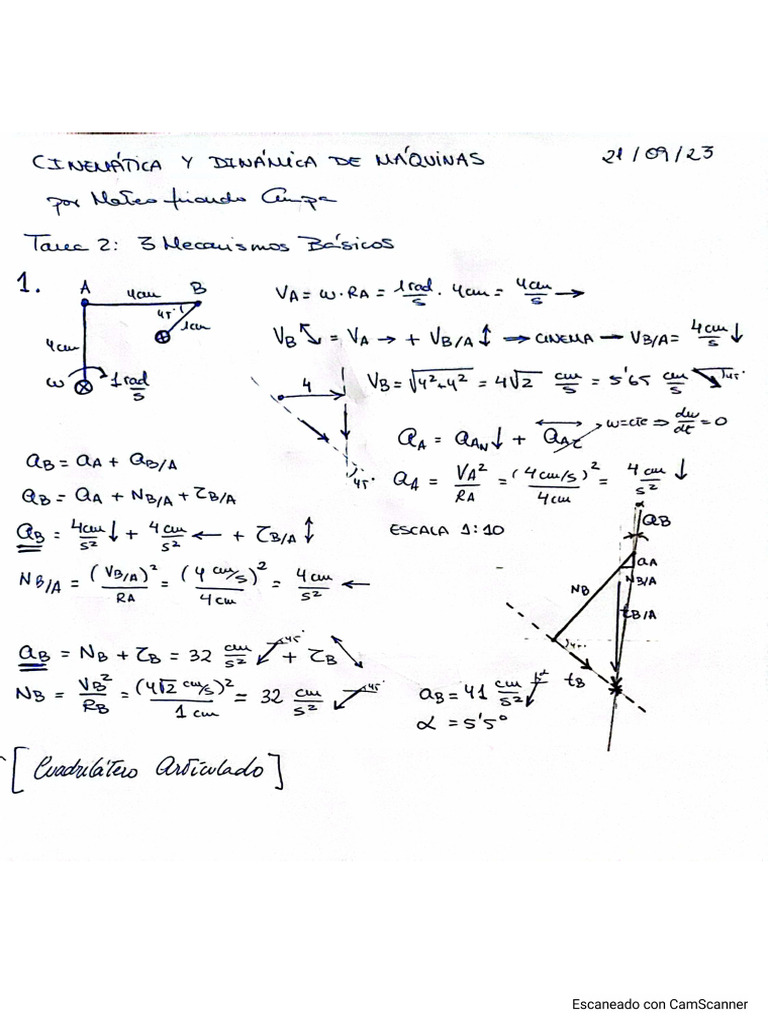 CINEMÁTICA Y DINÁMICA DE MÁQUINAS 21/09/23
por Mateo
Tarea 2: 3 Mecanismos Básicos
1. A 4cm B
45° 1cm
4cm
ω 1 rad/s
VA = ω · RA = 1 rad/s · 4cm = 4cm/s →
VB ↘ = VA → + VB/A ↕ → CINEMA → VB/A = 4cm/s ↓
4 VB = √4²+4² = 4√2 cm/s = 5'65 cm/s 45°
45°
aA = aAN ↓ + aAτ ω=cte ⇒ dω/dt = 0
aA = VA²/RA = (4cm/s)²/4cm = 4cm/s² ↓
aB = aA + aB/A
aB = aA + NB/A + τB/A
aB = 4cm/s² ↓ + 4cm/s² ← + τB/A ↕
ESCALA 1:10
NB/A = (VB/A)²/RA = (4 cm/s)²/4cm = 4cm/s² ←
α
aB
aA
NB
NB/A
τB/A
45°
tB
aB = NB + τB = 32 cm/s² ↙ 45° + τB
NB = VB²/RB = (4√2 cm/s)²/1 cm = 32 cm/s² ↙ 45°
aB = 41 cm/s²
α = 5'5°
[Cuadrilátero Articulado]
Escaneado con CamScanner